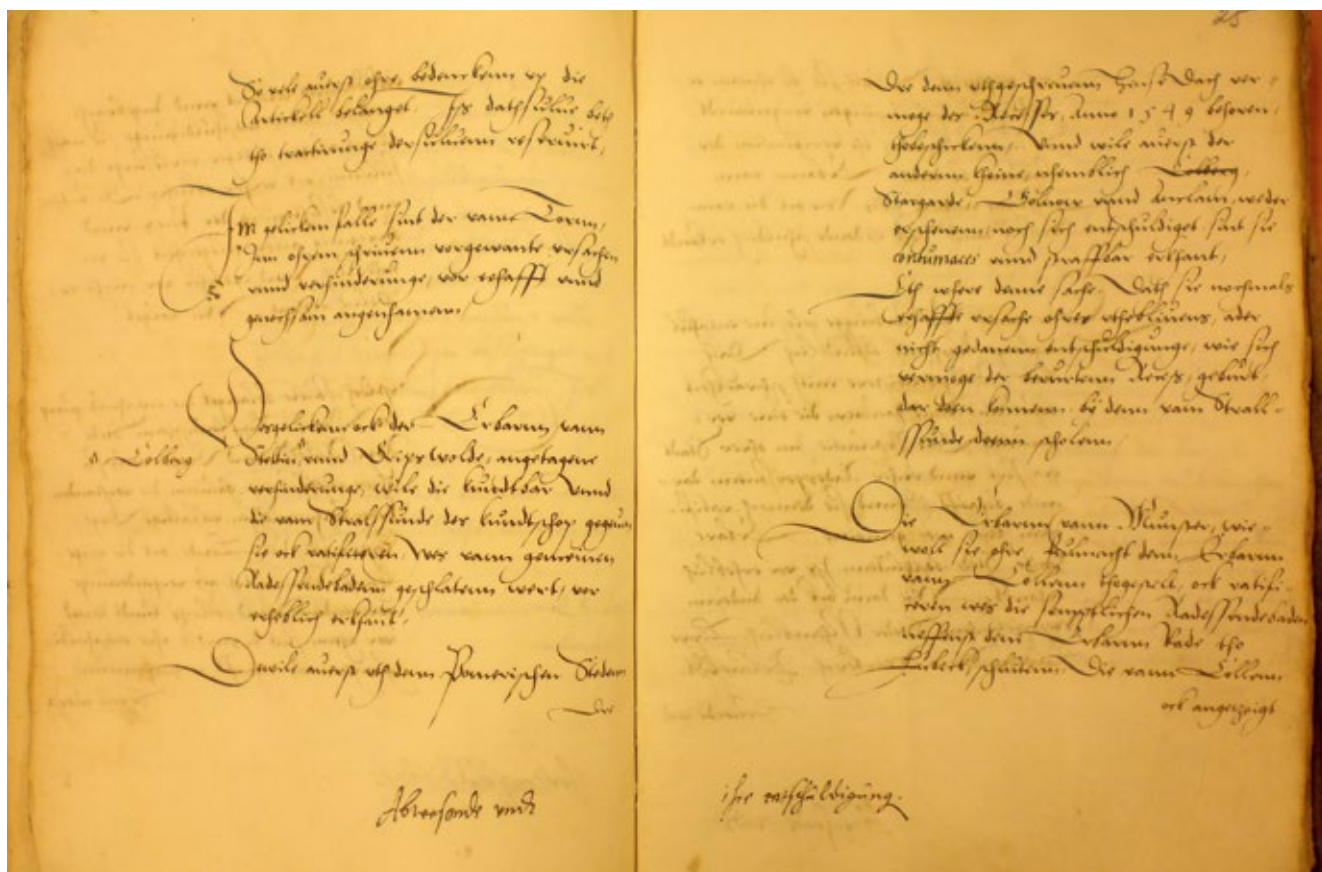 So vele auerst ohre bedenckenn vp die
Artickell belanget, Iss dathsulue beth
tho tractirunge dersuluenn reseruirt,
Im gelickem falle sint der vann Torun,
Inn ohrem schriuenn vorgewante vrsachen
vnnd verhinderunge, vor ehafft vnnd
genochsam angenhamenn,
Desgelickenn ock der Erbarnn vann
Colberg
Stettin vnnd Gripswolde, angetagene
verhinderunge, wile die kundtbar vnnd
die vam Stralssunde des kundtschop gegeuen
sie ock ratificeren, Wes vann gemeinen
Radessendebadenn geschlatenn wert, vor
erheblich erkhant,
Dewile auerst vth denn Pomerischen Steden
Dre
Abwesende vnd
25
Dre denn vthgeschreuenn Hanse Dach ver-
moge des Recesses, Anno 1549 behoren
thobeschickenn, Vnnd wile auerst der
anderen keine, nhemblich Colberg,
Stargarde, Golnow vnnd Anclam, weder
erschenenn, noch sich entschuldiget, sint sie
contumaces vnnd straffbar erkhant,
Edt where denne sache, Dath sie nochmals
ehaffte vrsache ohres vthbliuens, ader
nicht gedanenn entschuldigunge, wie sich
vermoge des berurten Recess, geburt
dar doen konnenn, bi denn vam Strall-
ssunde, doenn scholenn,
Die Erbarnn vann Munster, wie-
woll sie ohre Fulmacht denn Erbarnn
vann Collenn thogestelt, ock ratifi-
ceren wes die semptlichen Radessendebaden
neffenst dem Erbarnn Rade tho
Lubeck, schlutenn, Die vann Collenn
ock angezeigt
ihre entschuldigung.